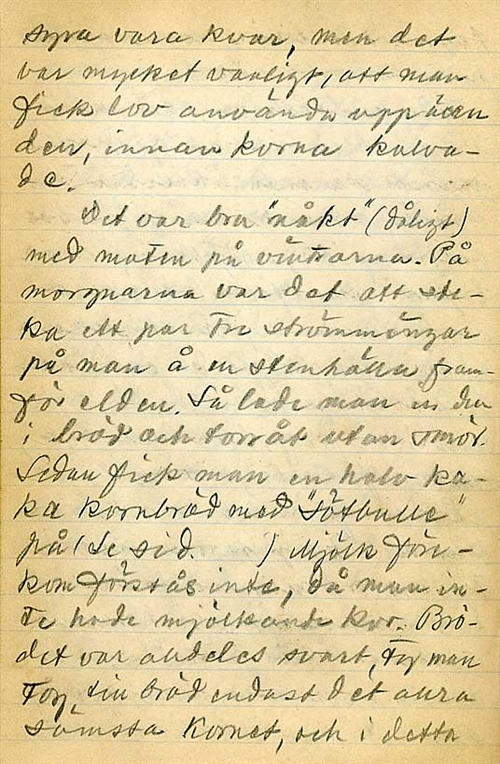 syra vara kvar, men det
var mycket vanligt, att man
fick lov använda upp även
den, innan korna kalva-
de.
Det var bra "nåkt" (dåligt)
med maten på vintrarna. På
morgnarna var det att ste-
ka ett par tre strömmingar
på man å en stenhälla fram-
för elden. Så lade man in den
i bröd och torråt utan smör.
Sedan fick man en halv ka-
ka kornbröd med "sötbulle"
på (Se sid. ) Mjölk före-
kom förstås inte, då man in-
te hade mjölkande kor. Brö-
det var alldeles svart, ty man
tog till bröd endast det allra
sämsta kornet, och i detta